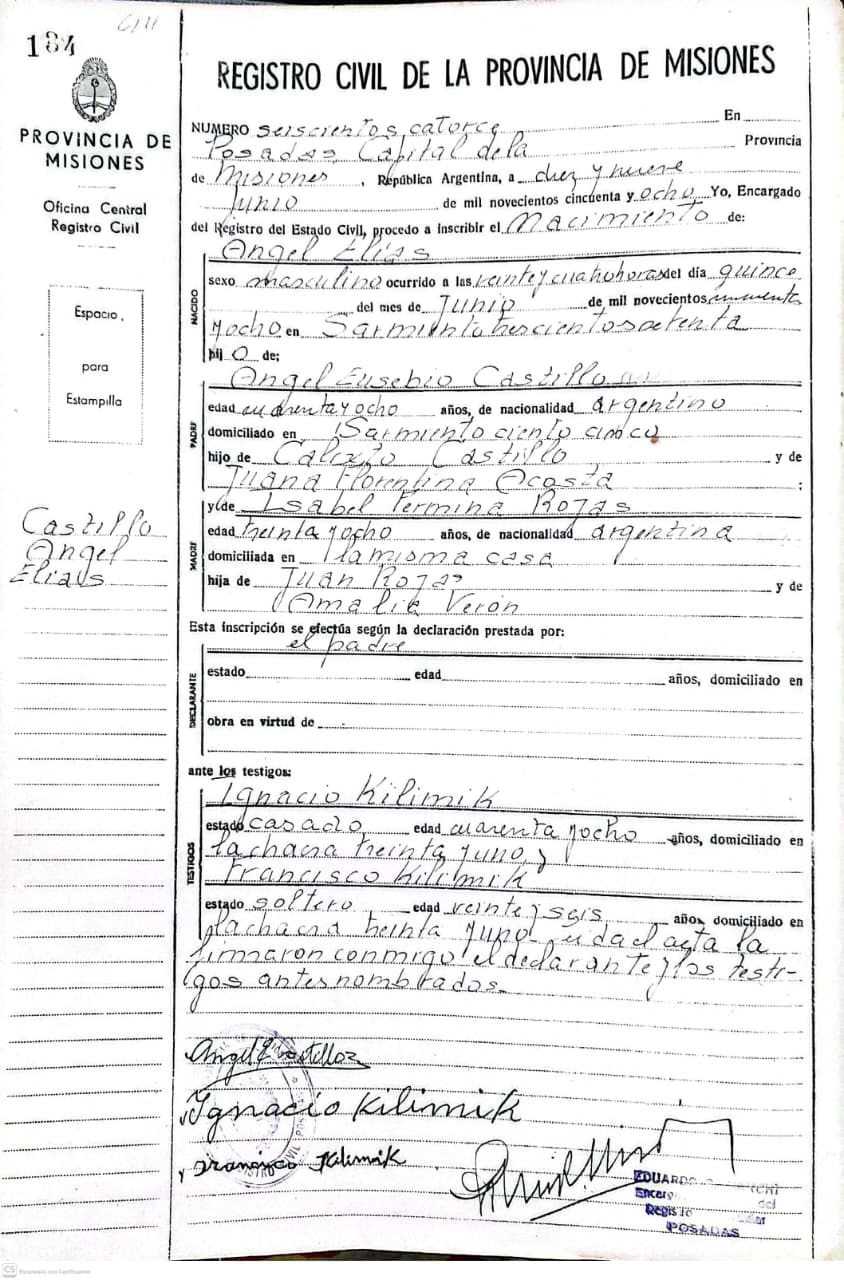 614
184
PROVINCIA DE
MISIONES
Oficina Central
Registro Civil
Espacio
para
Estampilla
Castillo
Angel
Elias
REGISTRO CIVIL DE LA PROVINCIA DE MISIONES
NUMERO seiscientos catorce En
Posadas, Capital de la Provincia
de Misiones, República Argentina, a diez y nueve
Junio de mil novecientos cincuenta y ocho Yo, Encargado
del Registro del Estado Civil, procedo a inscribir el Nacimiento de:
Angel Elias
NACIDO
sexo masculino ocurrido a las veinte y cuatro horas del día quince
del mes de Junio de mil novecientos cincuenta
y ocho en Sarmiento trescientos setenta
hijo de;
Angel Eusebio Castillo
PADRE
edad cuarenta y ocho años, de nacionalidad argentino
domiciliado en Sarmiento ciento cinco
hijo de Calixto Castillo y de
Juana Florentina Acosta ;
y de Isabel Fermina Rojas
MADRE
edad treinta y ocho años, de nacionalidad argentina
domiciliada en la misma casa
hija de Juan Rojas y de
Amalia Verón
Esta inscripción se efectúa según la declaración prestada por:
el padre
DECLARANTE
estado edad años, domiciliado en
obra en virtud de
ante los testigos:
Ignacio Kilimik
TESTIGOS
estado casado edad cuarenta y ocho años, domiciliado en
la chacra treinta y uno, y
Francisco Kilimik
estado soltero edad veinte y seis años, domiciliado en
la chacra treinta y uno el acta la
firmaron conmigo el declarante y los testi-
gos antes nombrados.
Ignacio Kilimik
Francisco Kilimik
EDUARDO
del
POSADAS
CS Escaneado con CamScanner